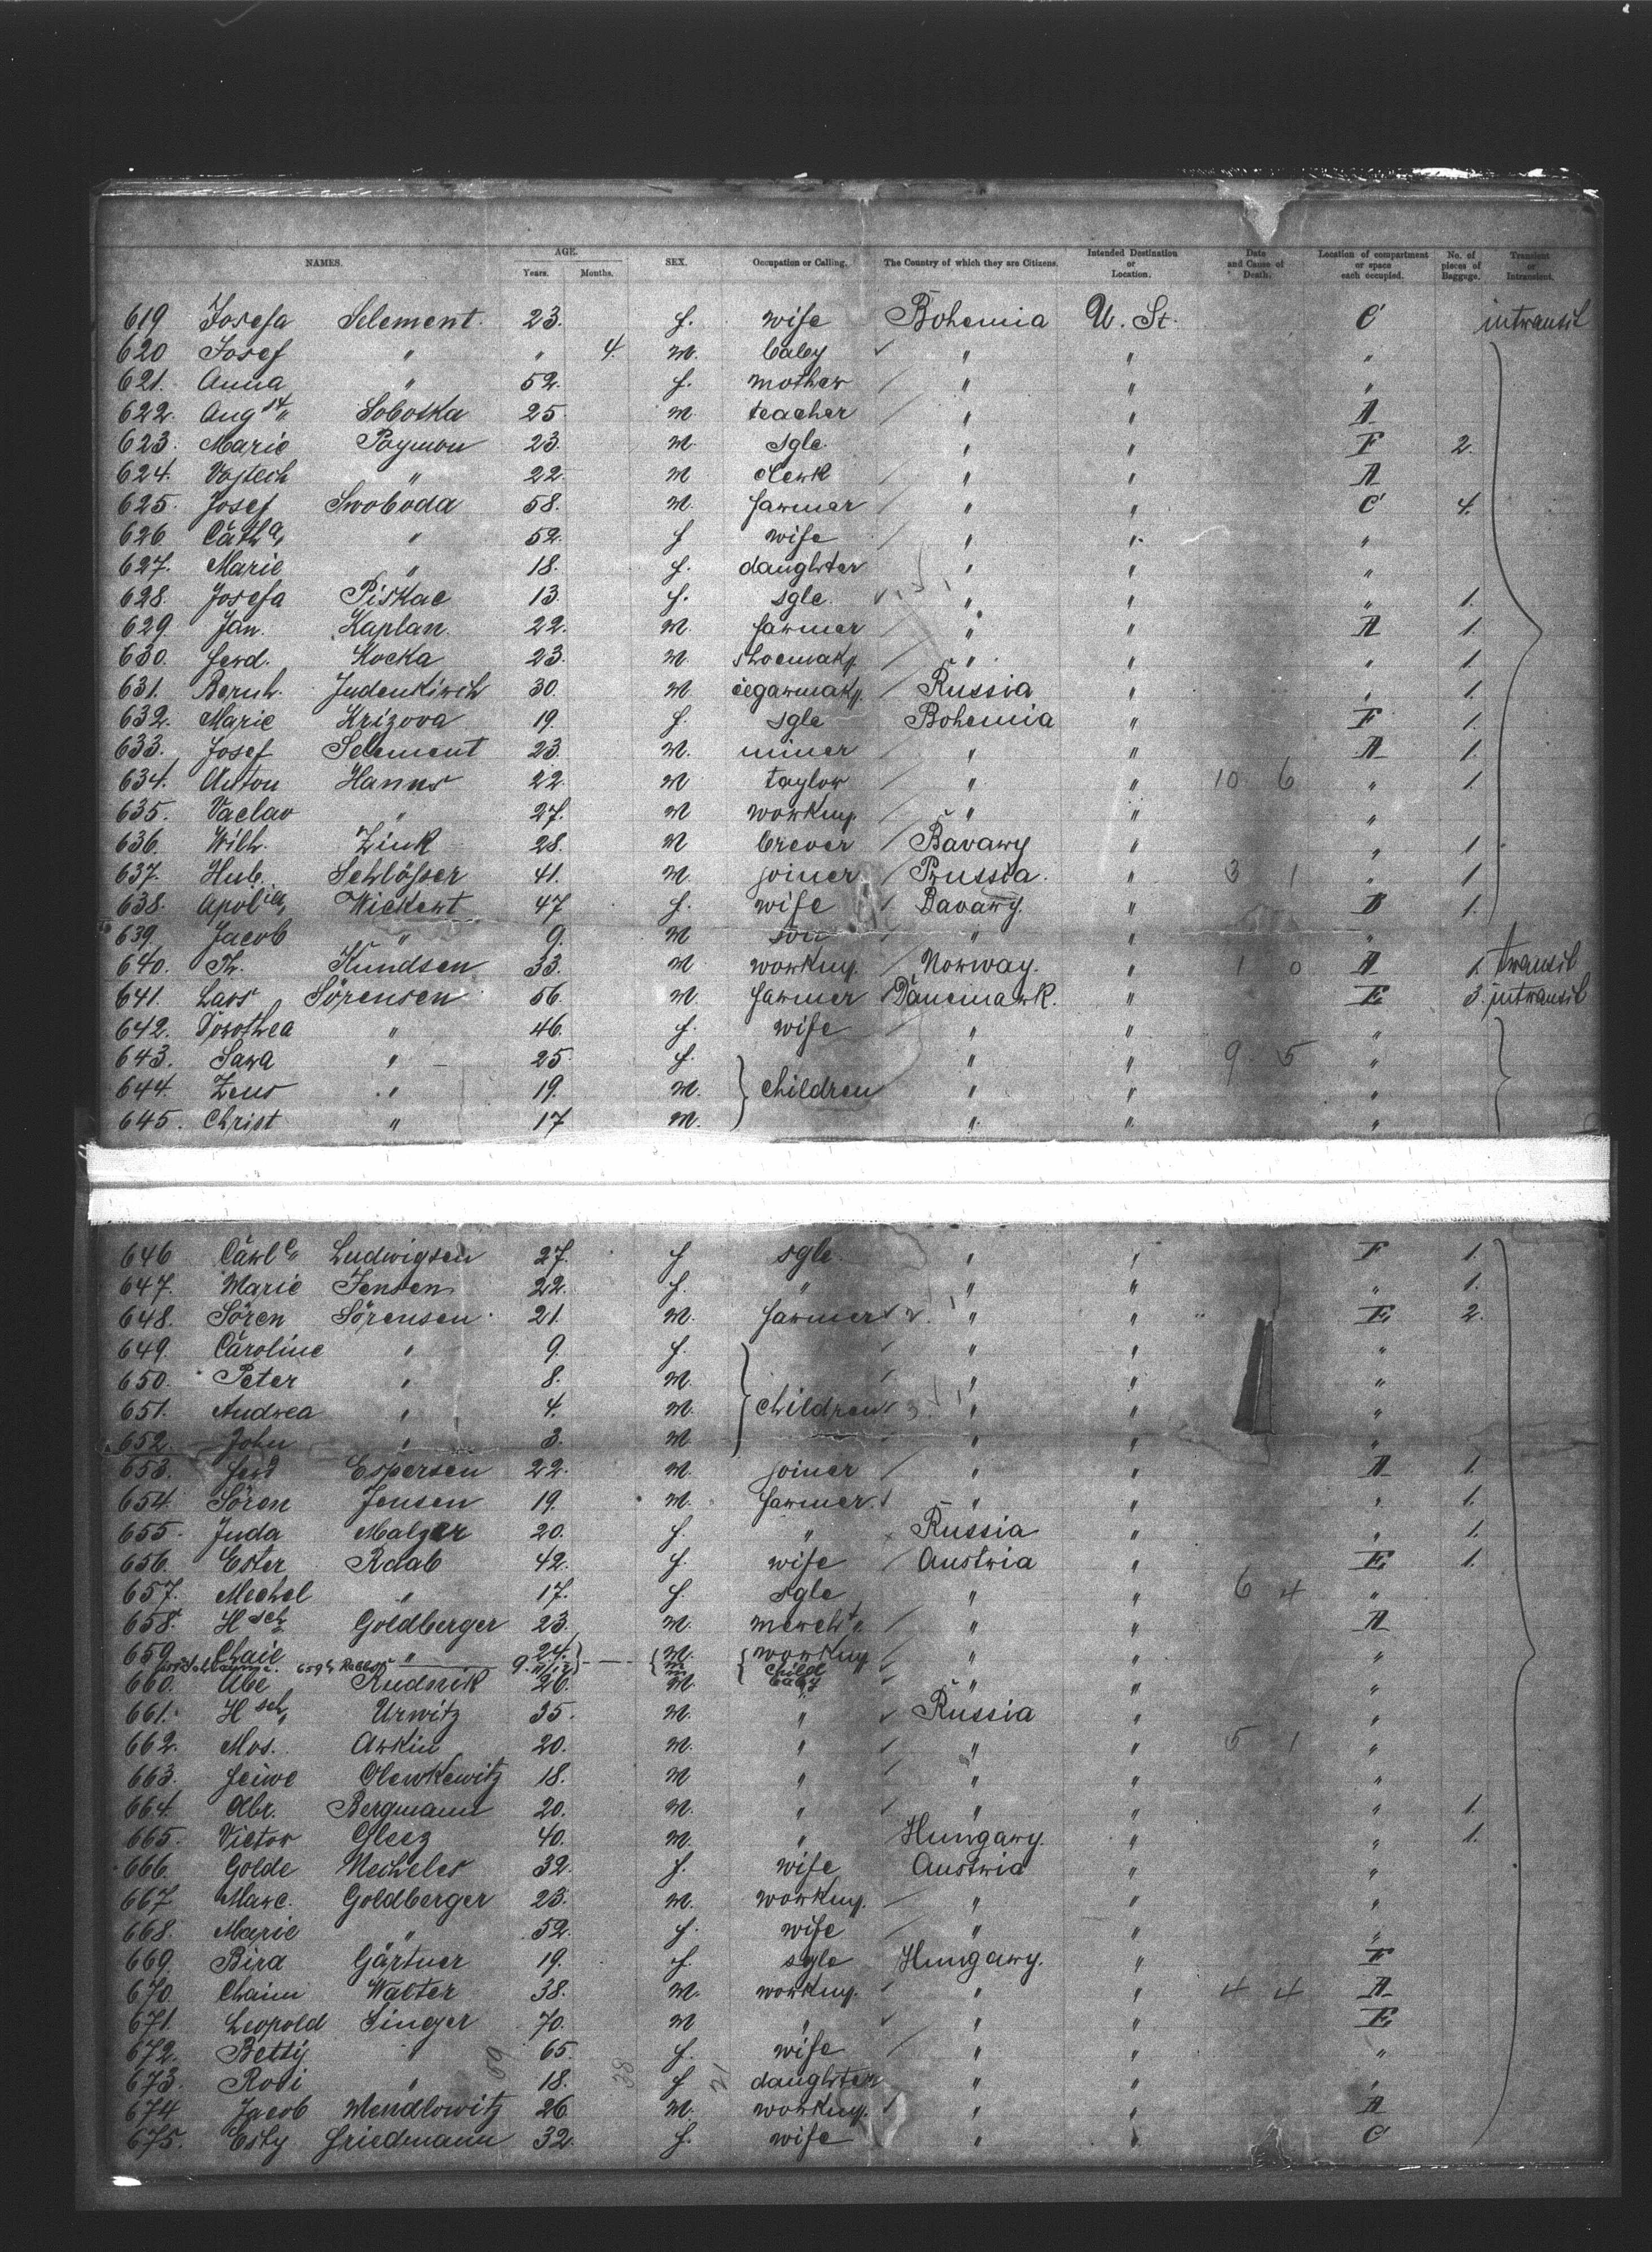 NAMES. AGE. Years. Months. SEX. Occupation or Calling. The Country of which they are Citizens. Intended Destination or Location. Date and Cause of Death. Location of compartment or space each occupied. No. of pieces of Baggage. Transient or Intransient.
619 Josefa Selement. 23. f. wife Bohemia U. St. C intransit
620 Josef " " 4. m. baby " " "
621. Anna " 52. f. mother " " "
622. Aug st " Soboska 25. m. teacher " " A
623. Marie Poymon 23. m. sgle. " " F 2.
624. Vojtech " 22. m clerk " " A
625. Josef Swoboda 58. m. farmer " " C 4.
626. Cath a, " 52. f wife " " "
627. Marie " 18. f. daughter " " "
628. Josefa Piskac 13. f. sgle. " " " 1.
629. Jan. Kaplan. 22. m. farmer " " A 1.
630. Ferd. Kocka 23. m. shoemak. " " " 1.
631. Bernh. Judenkirch 30. m. cegarmak. Russia " " 1.
632. Marie Krizova 19. f. sgle Bohemia " F 1.
633. Josef Selement 23. m. miner " " A 1.
634. Anton Hanns 22. m taylor " " 10 6 " 1.
635. Vaclav " 27. m workm. " " "
636. Wilh. Zink 28. m brever Bavary " " 1
637. Hub. Schlösser 41. m. joiner Prussia. " 3 1 " 1
638. Apol ia, Wickert 47 f. wife Bavary. " B 1.
639. Jacob " 9. m son " " "
640. Th. Kundsen 33. m workm. Norway. " 1 0 A 1. transit
641. Lars Sörensen 56. m. farmer Dänemark. " E 3. intransit
642. Dorothea " 46. f. wife " " "
643. Sara " 25 f. " " 9 5 "
644. Zens " 19. m. children " " "
645. Christ " 17 m. " " "
646 Carl e " Ludwigsen 27. f sgle. " " F 1.
647. Marie Jensen 22. f. " " " " 1.
648. Sören Sörensen 21. m. farmer " " E 2.
649. Caroline " 9. f. " " "
650. Peter " 8. m. " " "
651. Andrea " 4. m. children 3. " " "
652. John " 3. m " " "
653. Ferd Espersen 22. m. joiner " " A 1.
654. Sören Jensen 19. m. farmer " " " 1.
655. Juda Malzer 20. f. " Russia " " 1.
656. Ester Raab 42. f. wife Austria " E 1.
657. Mechel " 17. f. sgle " " 6 4 "
658. H sch " Goldberger 23. m. mercht " " A
659. Chaie " 24. m. workm " " "
9. child
660. Abe Rudnik 26. m. baby " " "
661. H sch " Urwitz 35. m. " Russia " "
662. Mos. Arkin 20. m. " " " 5 1 "
663. Feiwe Olewkewitz 18. m " " " "
664. Abr. Bergmann 20. m. " " " " 1.
665. Victor Gleez 40. m. " Hungary. " " 1.
666. Golde Mecheles 32. f. wife Austria " "
667. Marc. Goldberger 23. m. workm. " " "
668. Marie " 52. f. wife " " "
669. Bira Gärtner 19. f. sgle Hungary. " F
670. Chaim Walter 38. m. workm. " " 4 4 A
671. Leopold Singer 70. m " " " E
672. Betty " 65. f. wife " " "
673. Rosi " 18. f daughter " " "
674. Jacob Mendlowitz 26 m. workm. " " A
675. Esty Friedmann 32. f. wife " " C